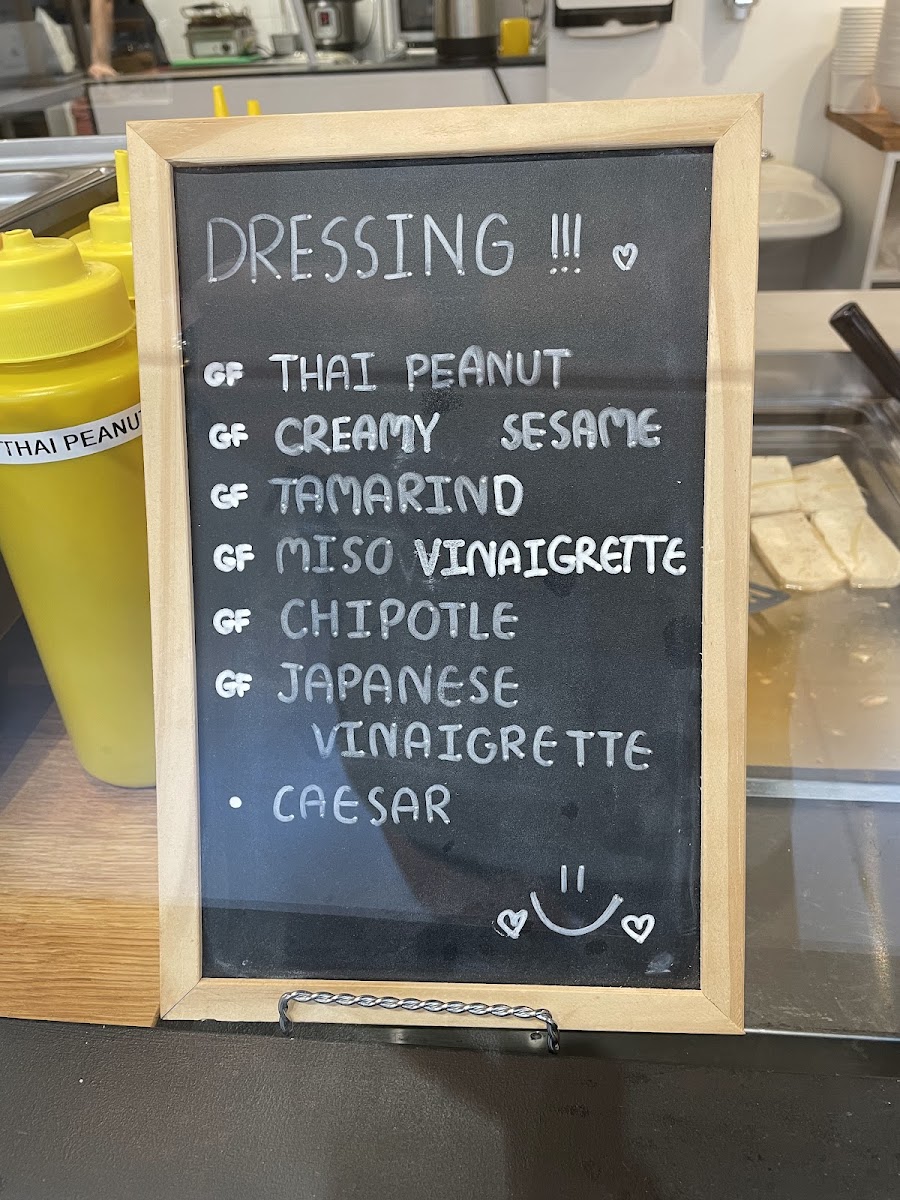 DRESSING !!! ♡
GF THAI PEANUT
GF CREAMY SESAME
GF TAMARIND
GF MISO VINAIGRETTE
GF CHIPOTLE
GF JAPANESE
VINAIGRETTE
• CAESAR
THAI PEANU